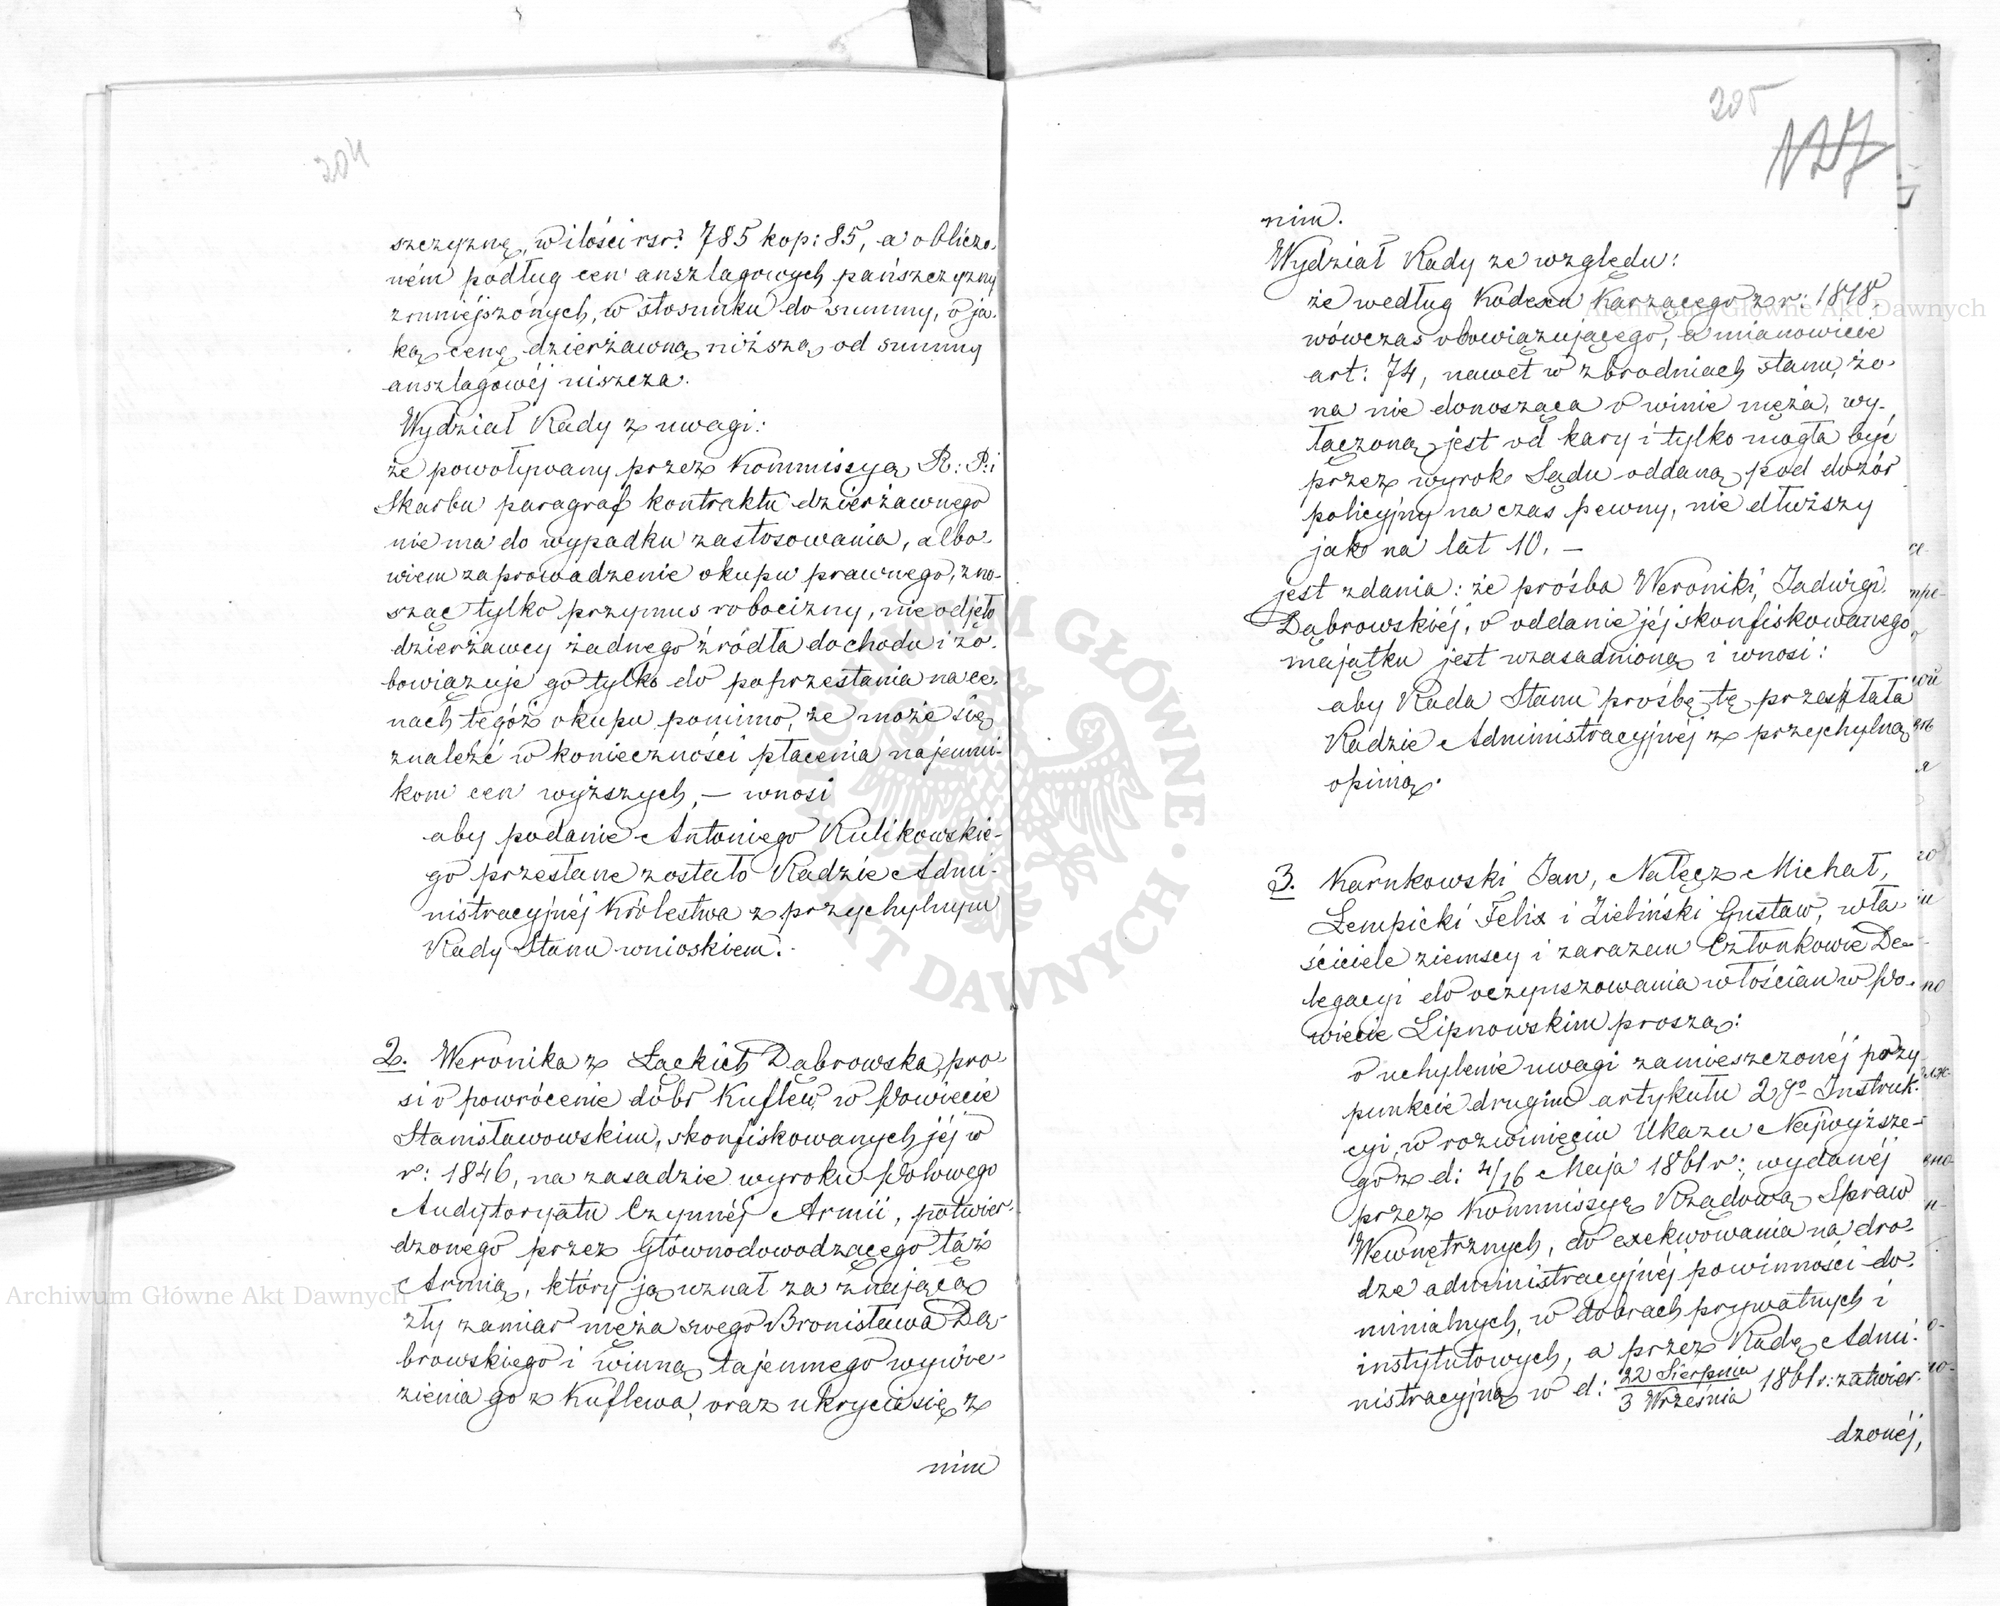 204
szczyznę, w ilości rsr: 785 kop: 85, a obliczo-
ném podług cen anszlagowych pańszczyzny
zmniejszonych, w stosunku do summy, o ja-
ką cenę dzierżawną niższą od summy
anszlagowéj uiszcza.
Wydział Rady z uwagi:
że powoływany przez Kommissyą R: P: i
Skarbu paragraf kontraktu dzierżawnego
nie ma do wypadku zastosowania, albo-
wiem zaprowadzenie okupu prawnego, zno-
sząc tylko przymus robocizny, nie odjęło
dzierżawcy żadnego źródła dochodu i zo-
bowiązuje go tylko do poprzestania na ce-
nach tegóż okupu pomimo, że może się
znaleźć w konieczności płacenia najemni-
kom cen wyższych, — wnosi
aby podanie Antoniego Kulikowskie-
go przesłane zostało Radzie Admi-
nistracyjnéj Królestwa z przychylnym
Rady Stanu wnioskiem.
2. Weronika z Łąckich Dąbrowska, pro-
si o powrócenie dóbr Kuflew w Powiecie
Stanisławowskim, skonfiskowanych jéj w
r: 1846, na zasadzie wyroku Polowego
Audytoryatu Czynnéj Armii, potwier-
dzonego przez Głównodowodzącego táż
Armią, który ją uznał za znającą
zły zamiar męża swego Bronisława Dą-
browskiego i winną tajemnego wywie-
zienia go z Kuflewa, oraz ukrycia się z
nim
205
127
nim.
Wydział Rady ze względu:
że według Kodexu Karzącego z r: 1818.
wówczas obowiązującego, a mianowicie
art: 74, nawet w zbrodniach stanu, żo-
na nie donosząca o winie męża, wy-
łączoną jest od kary i tylko mogła być
przez wyrok Sądu oddaną pod dozór
policyjny na czas pewny, nie dłuższy
jak na lat 10. —
jest zdania: że prośba Weroniki, Jadwigi
Dąbrowskiéj, o oddanie jéj skonfiskowanego
majątku jest uzasadnioną i wnosi:
aby Rada Stanu prośbę tę przesłała
Radzie Administracyjnéj z przychylną
opinią.
3. Karnkowski Jan, Nałęcz Michał,
Łempicki Felix i Zieliński Gustaw, wła-
ściciele ziemscy i zarazem Członkowie De-
legacyi do oczynszowania włościan w Po-
wiecie Lipnowskim proszą:
o uchylenie uwagi zamieszczonéj przy
punkcie drugim artykułu 2go Instruk-
cyi, w rozwinięciu Ukazu Najwyższe-
go z d: 4/16 Maja 1861 r: wydanéj
przez Kommissyę Rządową Spraw
Wewnętrznych, do exekwowania na dro-
dze administracyjnéj powinności do-
minialnych, w dobrach prywatnych i
instytutowych, a przez Radę Admi-
nistracyjną w d: 22 Sierpnia/3 Września 1861 r: zatwier-
dzonéj,
Archiwum Główne Akt Dawnych
Archiwum Główne Akt Dawnych
ARCHIWUM GŁÓWNE AKT DAWNYCH